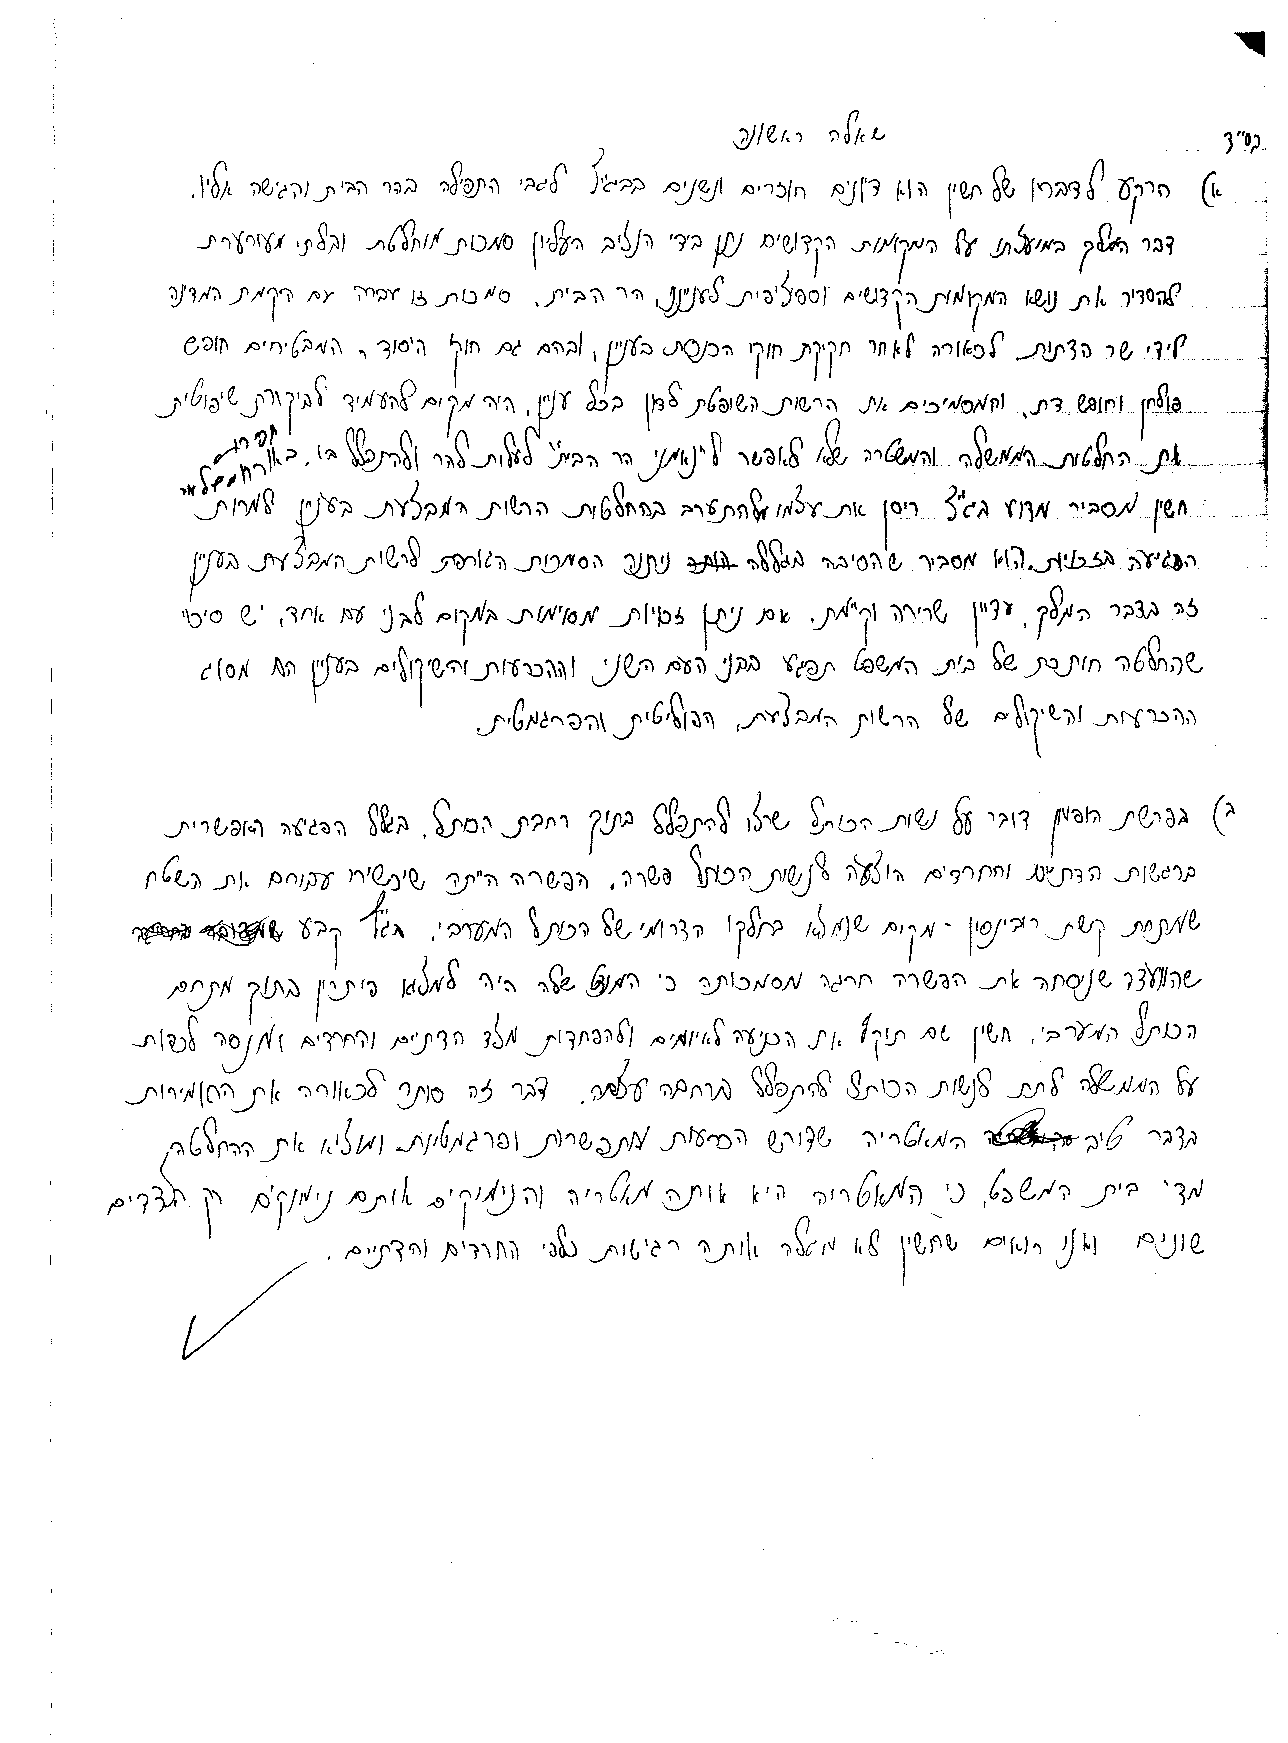 בס"ד
שאלה ראשונה
א) הרקע לדבריו של חשין הוא דיונים חוזרים ונשנים בבג"צ לגבי התפילה בהר הבית והגישה אליו.
דבר המלך במועצתו על המקומות הקדושים נתן בידי הנציב העליון סמכות מוחלטת ובלתי מעורערת
להסדיר את נושא המקומות הקדושים וספציפית לעניננו, הר הבית. סמכות זו עברה עם הקמת המדינה
לידי שר הדתות. לכאורה לאחר חקיקת חוקי הכנסת בעניין, ובהם גם חוקי היסוד, המבטיחים חופש
פולחן וחופש דת, והמסמיכים את הרשות השופטת לדון בכל עניין, היה מקום להעמיד לביקורת שיפוטית
את החלטות הממשלה והמשטרה שלא לאפשר ל"נאמני הר הבית" לעלות להר ולהתפלל בו.
חשין מסביר מדוע בג"צ ריסן את עצמו מלהתערב בהחלטות הרשות המבצעת בעניין למרות
הפגיעה בזכויות. הוא מסביר שהסיבה בגללה ניתנה הסמכות הגורפת לרשות המבצעת בעניין
זה בדבר המלך, עדיין שרירה וקיימת. אם ניתן זכויות מסוימות במקום לבני עם אחד, יש סיכוי
שהחלטה חותכת של בית המשפט תפגע בבני העם השני וההכרעות והשיקולים בעניין הם מסוג
ההכרעות והשיקולים של הרשות המבצעת, הפוליטית והפרגמטית.
ב) בפרשת הופמן דובר על נשות הכותל שרצו להתפלל בתוך רחבת הכותל. בגלל הפגיעה האפשרית
ברגשות הדתיים והחרדים הוצעה לנשות הכותל פשרה. הפשרה הייתה שיכשירו עבורם את השטח
שמתחת קשת רובינסון - מקום שנמצא בחלקו הדרומי של הכותל המערבי. בג"צ קבע
שהוועדה שניסחה את הפשרה חרגה מסמכותה כי המנדט שלה היה למצוא פיתרון בתוך מתחם
הכותל המערבי. חשין שם תוקף את הכניעה לאיומים ולהפחדות מצד הדתיים והחרדים ומנסה לכפות
על הממשלה לתת לנשות הכותל להתפלל ברחבה עצמה. דבר זה סותר לכאורה את החומירות
בדבר טיב המאטריה שדורש הכרעות מתפשרות ופרגמטיות ומוציא את ההחלטה
מדי בית המשפט, כי המאטריה היא אותה מאטריה והנימוקים אותם נימוקים רק הצדדים
שונים ואנו רואים שחשין לא מגלה אותה רגישות כלפי החרדים והדתיים.